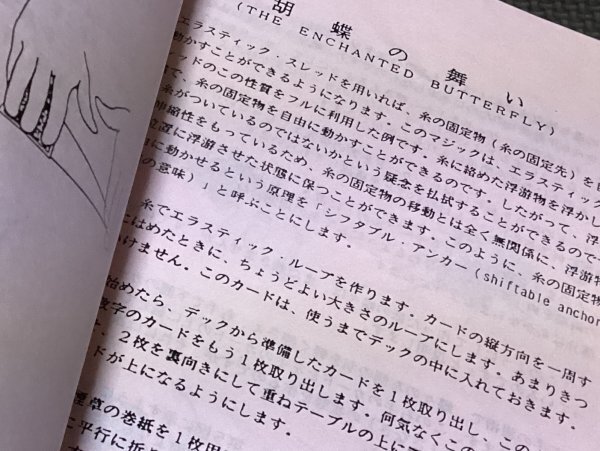 胡蝶の舞い
(THE ENCHANTED BUTTERFLY)
エラスティック・スレッドを用いれば、糸の固定物(糸の固定先)を
動かすことができるようになります。このマジックは、エラスティック
ッドのこの性質をフルに利用した例です。糸に絡めた浮游物を浮かし
で、糸の固定物を自由に動かすことができるのです。したがって、浮游
糸がついているのではないかという疑念を払拭することができるので
伸縮性をもっているため、糸の固定物の移動とは全く無関係に、浮游物
位置に浮游させた状態に保つことができます。このように、糸の固定物
に動かせるという原理を「シフタブル・アンカー(shiftable anchor
の意味)」と呼ぶことにします。
糸でエラスティック・ループを作ります。カードの縦方向を一周す
にはめたときに、ちょうどよい大きさのループにします。あまりきつ
けません。このカードは、使うまでデックの中に入れておきます。
始めたら、デックから準備したカードを1枚取り出し、この
数字のカードをもう1枚取り出します。何気なくこの
、2枚を裏向きにして重ねテーブルの上に
ドが上になるようにします。
煙草の巻紙を1枚用
に平行に折り